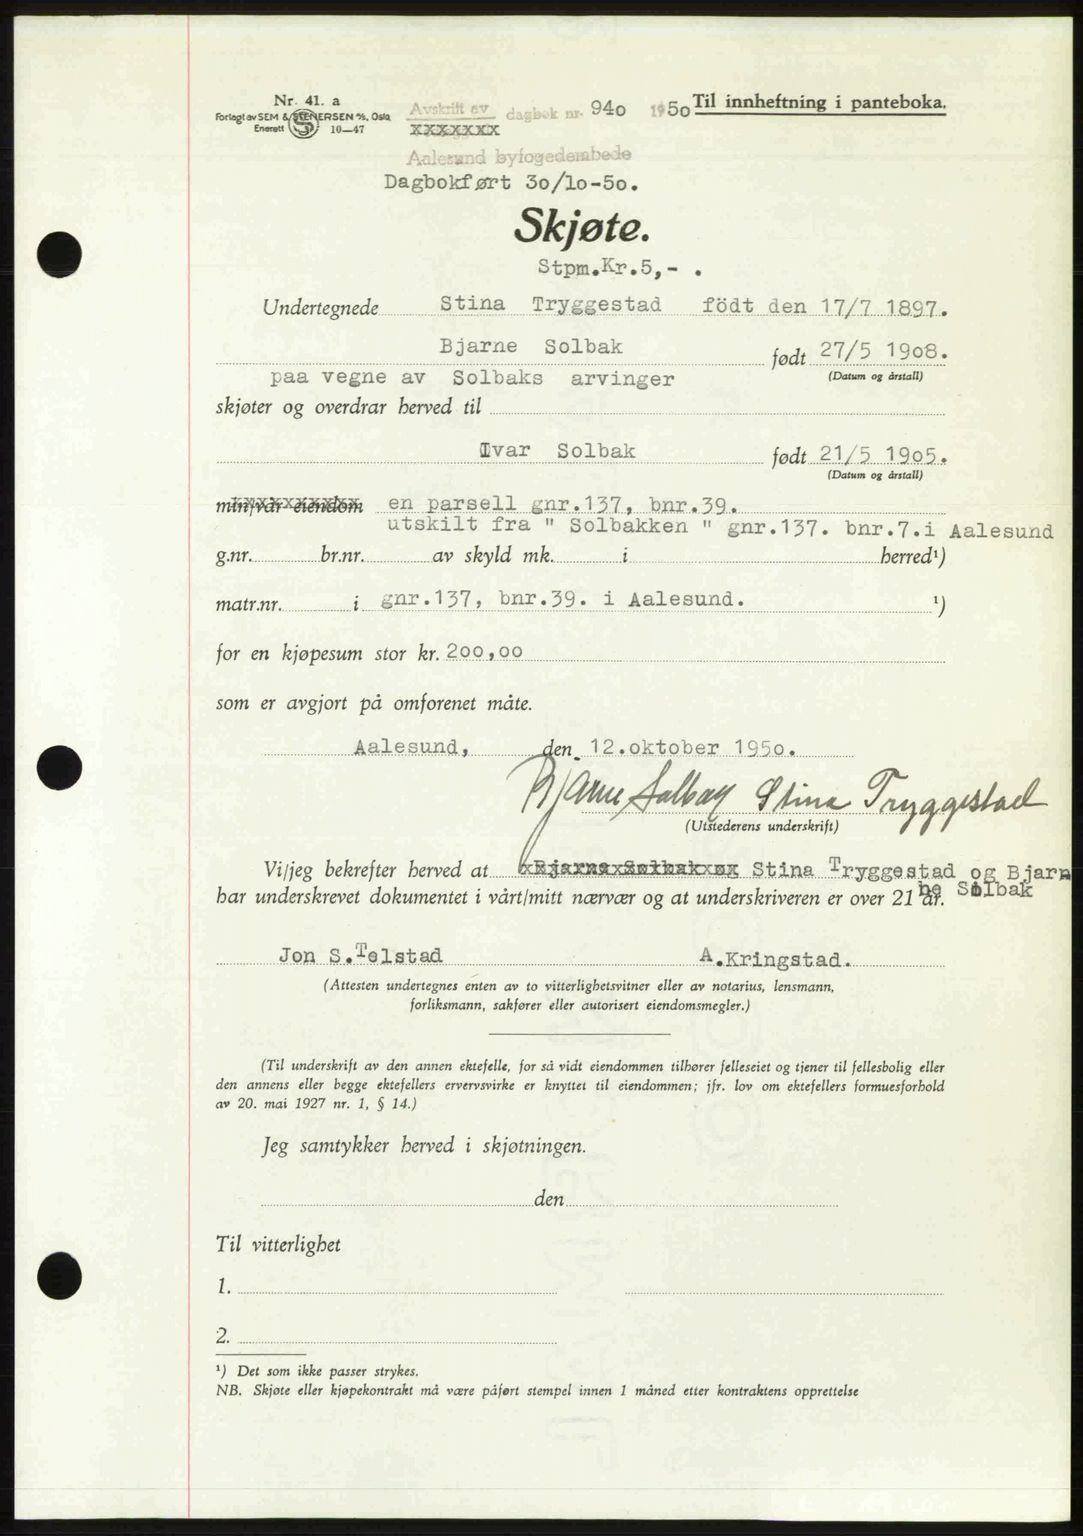 Nr. 41. a
Forlagt av SEM & STENERSEN A/S, Oslo
Enerett 10—47
Avskrift av dagbok nr. 940 1950 Til innheftning i panteboka.
xxxxxxx
Aalesund byfogedembede
Dagbokført 30/10-50.
Skjøte.
Stpm.Kr.5,- .
Undertegnede Stina Tryggestad födt den 17/7 1897.
Bjarne Solbak født 27/5 1908.
(Datum og årstall)
paa vegne av Solbaks arvinger
skjøter og overdrar herved til
Ivar Solbak født 21/5 1905.
(Datum og årstall)
min/vår eiendom en parsell gnr.137, bnr.39.
utskilt fra " Solbakken " gnr.137. bnr.7.i Aalesund
g.nr. br.nr. av skyld mk. i herred¹)
matr.nr. i gnr.137, bnr.39. i Aalesund. ¹)
for en kjøpesum stor kr. 200,00
som er avgjort på omforenet måte.
Aalesund, den 12.oktober 1950.
Bjarne Solbak Stina Tryggestad
(Utstederens underskrift)
Vi/jeg bekrefter herved at xBjarnexSolbakxøx Stina Tryggestad og Bjarn
ne Solbak
har underskrevet dokumentet i vårt/mitt nærvær og at underskriveren er over 21 år.
Jon S.Telstad A.Kringstad.
(Attesten undertegnes enten av to vitterlighetsvitner eller av notarius, lensmann,
forliksmann, sakfører eller autorisert eiendomsmegler.)
(Til underskrift av den annen ektefelle, for så vidt eiendommen tilhører felleseiet og tjener til fellesbolig eller
den annens eller begge ektefellers ervervsvirke er knyttet til eiendommen; jfr. lov om ektefellers formuesforhold
av 20. mai 1927 nr. 1, § 14.)
Jeg samtykker herved i skjøtningen.
den
Til vitterlighet
1.
2.
¹) Det som ikke passer strykes.
NB. Skjøte eller kjøpekontrakt må være påført stempel innen 1 måned etter kontraktens opprettelse